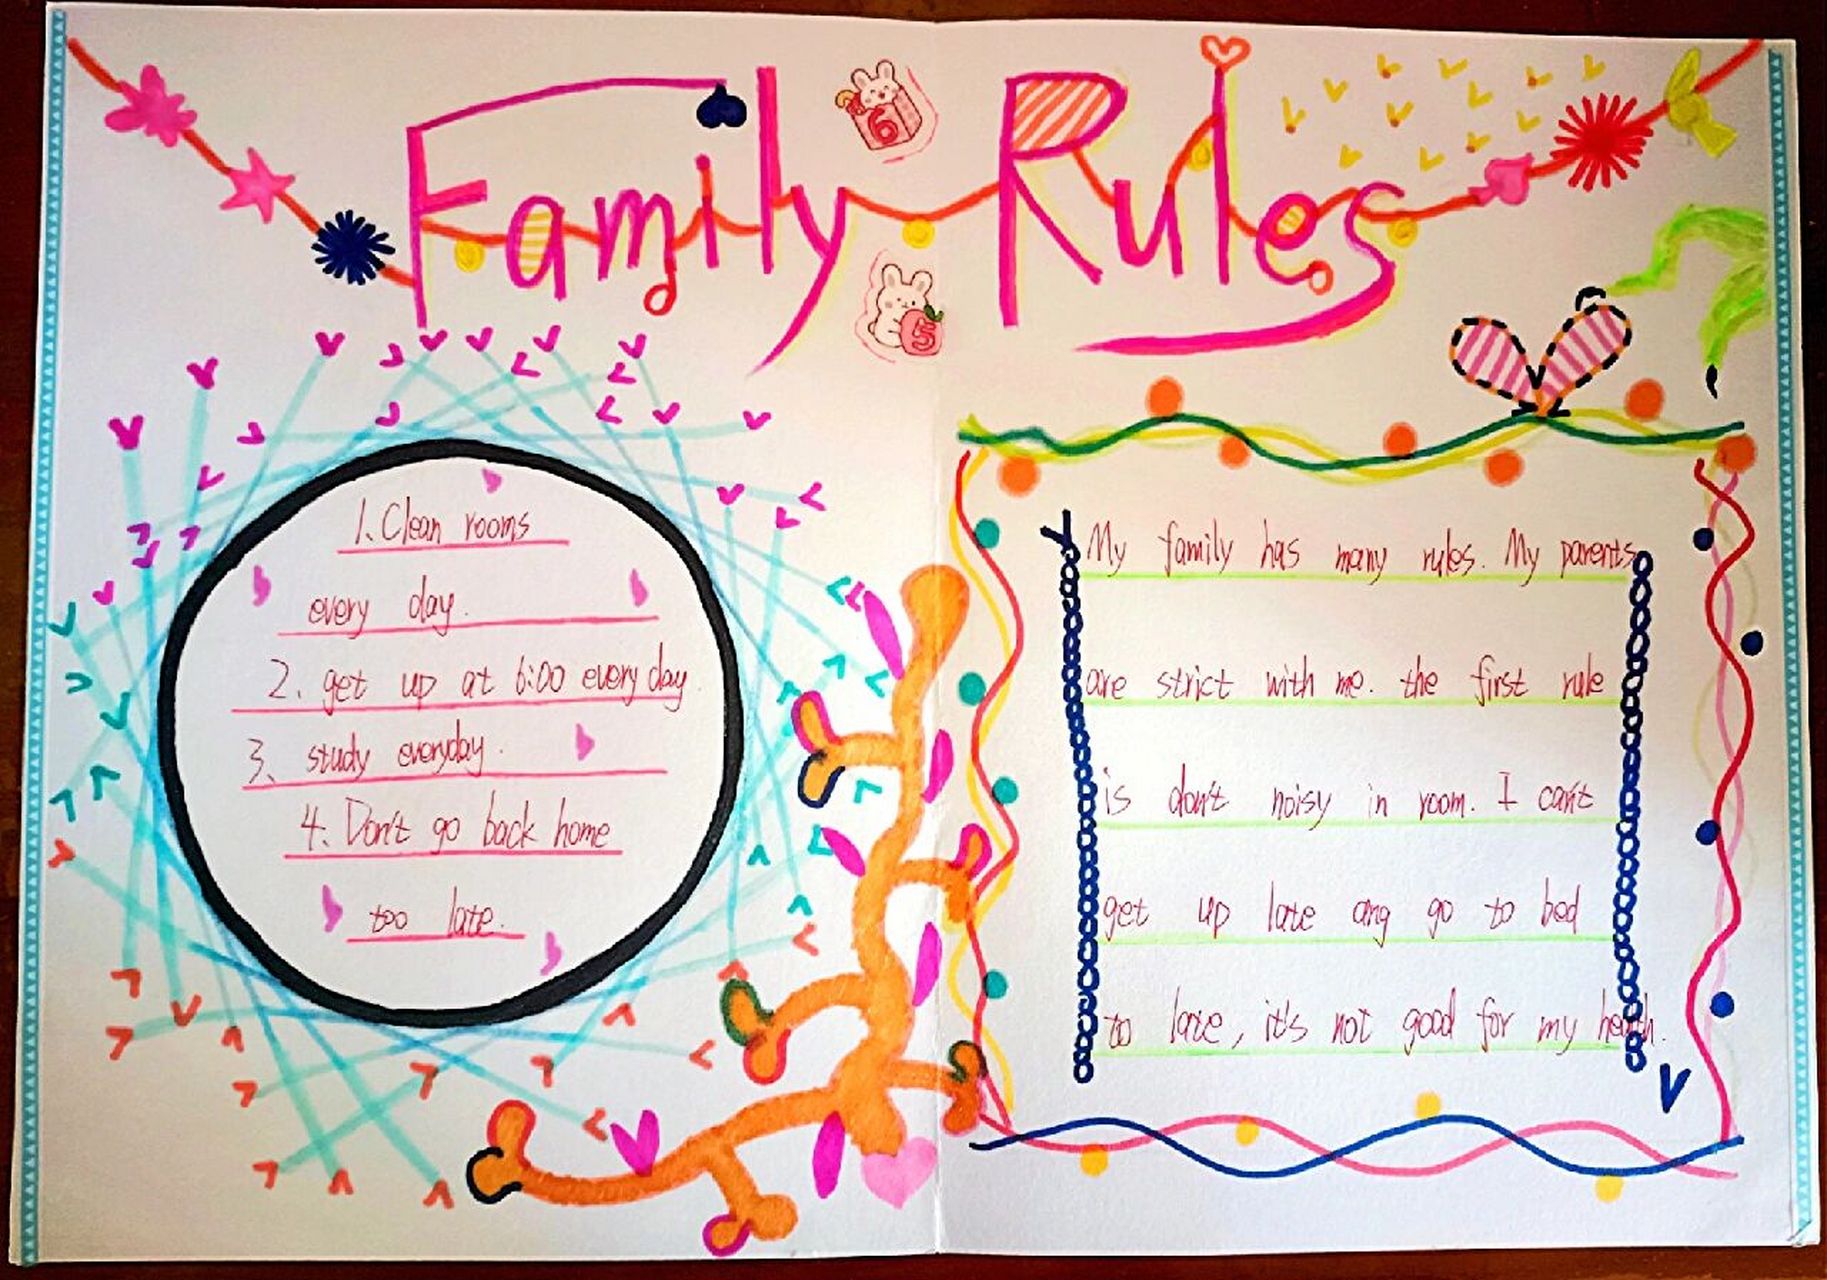 Family Rules
6
5
1. Clean rooms
every day.
2. get up at 6:00 every day.
3. study everyday.
4. Don't go back home
too late.
My family has many rules. My parents
are strict with me. the first rule
is don't noisy in room. I can't
get up late ang go to bed
to late, it's not good for my health.